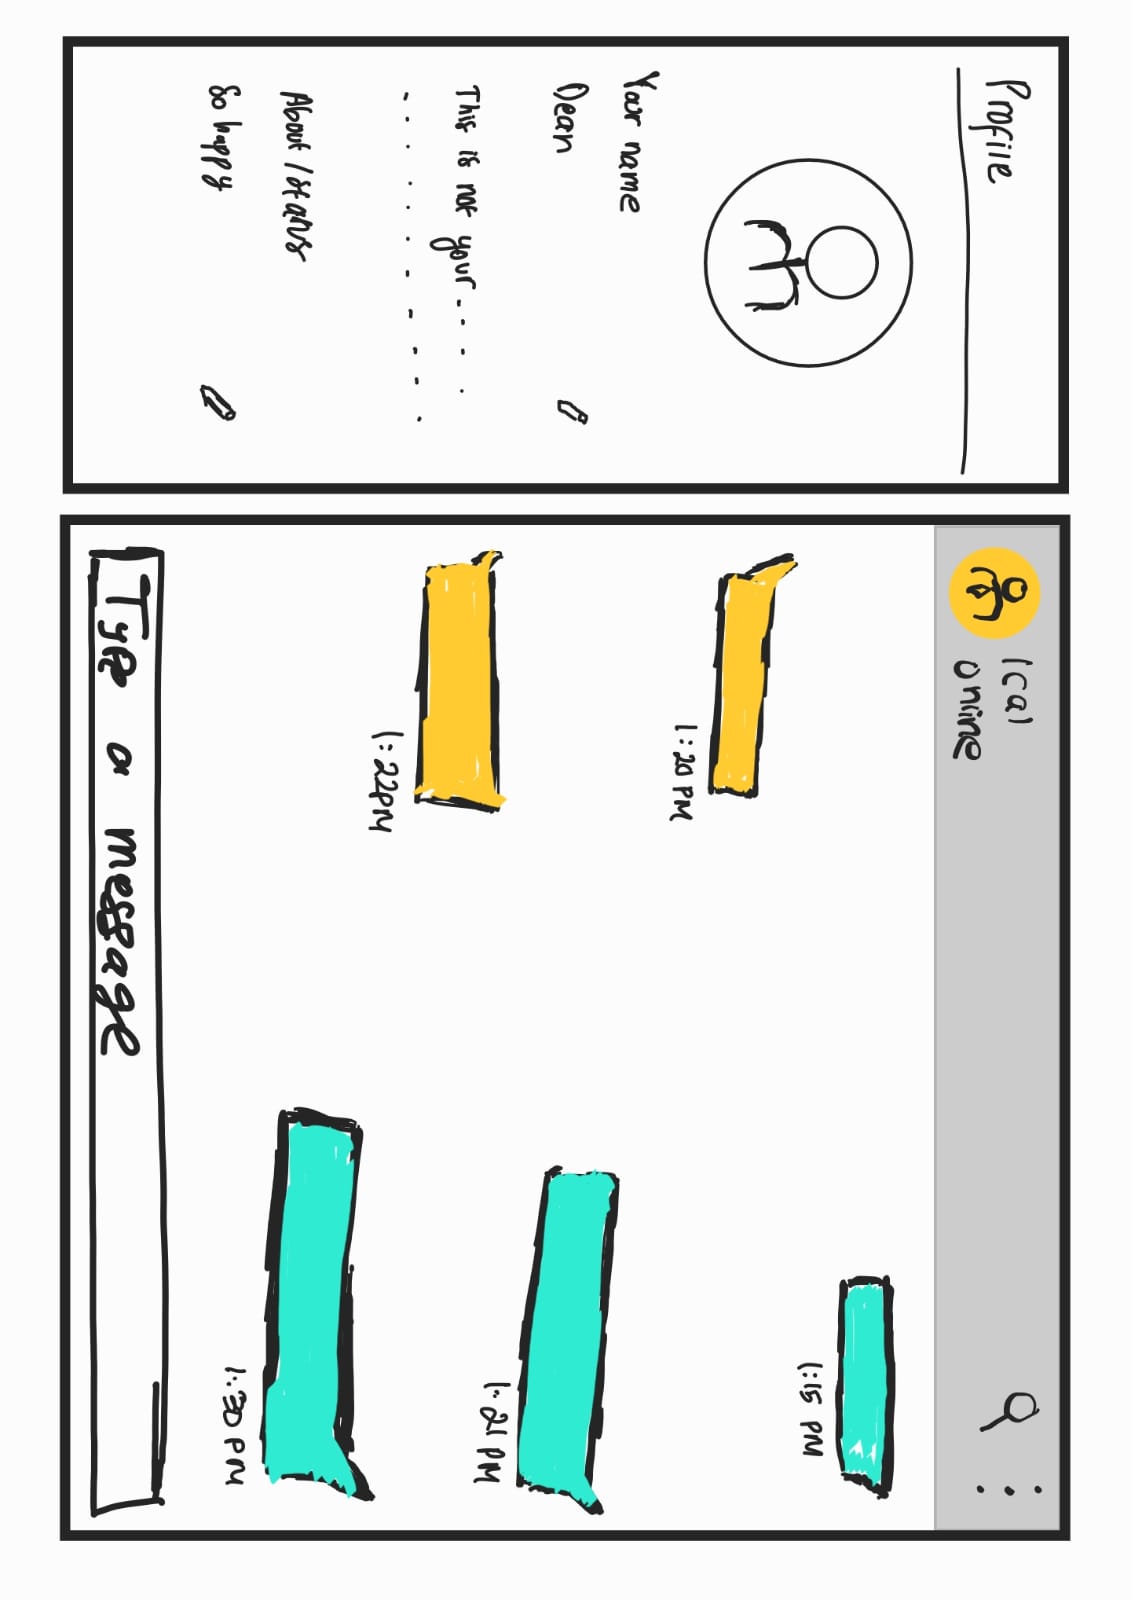 Profile
Your name
Dean
This is not your
About / status
So happy
Ical
online
1:15 PM
1:20 PM
1:21 PM
1:22PM
1:30 PM
Type a message